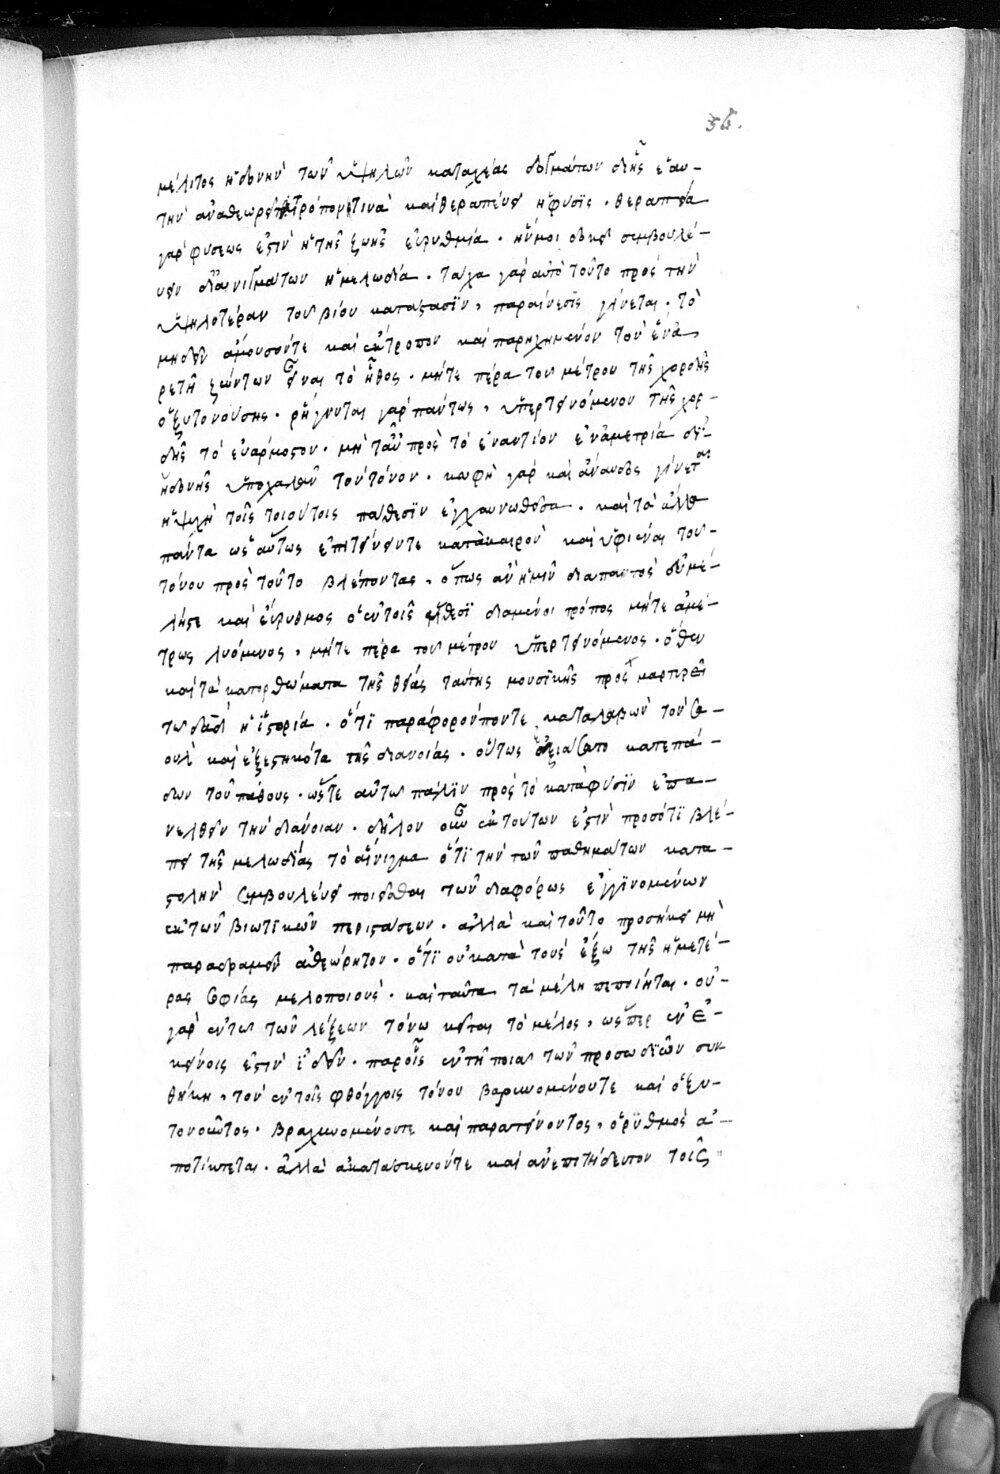 36.
μέλιτος ἡδονὴν τῶν ὑψηλῶν καταχέας δογμάτων δι' ἧς ἑαυ-
τὴν ἀναθεωρεῖ τρόπον τινὰ καὶ θεραπεύει ἡ φύσις. θεραπεία
γὰρ φύσεως ἐστὶν ἡ τῆς ζωῆς εὐρυθμία. ἥν μοι δοκεῖ συμβουλεύ-
ειν δι' αἰνιγμάτων ἡ μελωδία. τάχα γὰρ αὐτὸ τοῦτο πρὸς τὴν
ὑψηλοτέραν τοῦ βίου κατάστασιν, παραίνεσις γίνεται. τὸ
μὴ δεῖν ἄμουσόν τε καὶ ἔκτροπον καὶ παρηχημένον τῶν ἐν ἀ-
ρετῇ ζώντων εἶναι τὸ ἦθος. μήτε πέρα τοῦ μέτρου τῆς χορδῆς
ὀξυτονούσης. ῥήγνυται γὰρ πάντως, ὑπερτεινόμενον τῆς χορ-
δῆς τὸ εὐάρμοστον. μὴ τ' αὖ πρὸς τὸ ἐναντίον ἐν ἀμετρία δι'
ἡδονῆς ὑποχαλᾶν τὸν τόνον. κωφὴ γὰρ καὶ ἄναυδος γίνεται
ἡ ψυχὴ τοῖς τοιούτοις πάθεσιν ἐγχαυνωθεῖσα. καὶ τὰ ἄλλα
πάντα ὡσαύτως ἐπιτείνειν τε κατὰ καιρὸν καὶ ὑφιέναι τοῦ
τόνου πρὸς τοῦτο βλέποντας, ὅπως ἂν ἡμῖν διαπαντὸς εὐμε-
λής τε καὶ εὔρυθμος ὁ ἐν τοῖς ἤθεσι διαμένοι τρόπος μήτε ἀμέ-
τρως λυόμενος, μήτε πέρα τοῦ μέτρου ὑπερτεινόμενος. ὅθεν
καὶ τὰ κατορθώματα τῆς θείας ταύτης μουσικῆς προσμαρτυρεῖ
τῶ δαδ ἡ ἱστορία. ὅτι παραφοροῦντά ποτε καταλαβὼν τὸν σα-
οὺλ καὶ ἐξεστηκότα τῆς διανοίας. οὕτως ἐξιάσατο κατεπά-
δων τοῦ πάθους. ὥστε αὐτῶ πάλιν πρὸς τὸ κατὰ φύσιν ἐπα-
νελθεῖν τὴν διάνοιαν. δῆλον οὖν ἐκ τούτων ἐστὶν πρὸς ὅτι βλέ-
πει τῆς μελωδίας τὸ αἴνιγμα ὅτι τὴν τῶν παθημάτων κατα-
στολὴν συμβουλεύει ποιεῖσθαι τῶν διαφόρως ἐγγινομένων
ἐκ τῶν βιωτικῶν περιστάσεων. ἀλλὰ καὶ τοῦτο προσήκει μὴ
παραδραμεῖν ἀθεώρητον. ὅτι οὐ κατὰ τοὺς ἔξω τῆς ἡμετέ-
ρας σοφίας μελοποιοὺς. καὶ ταῦτα τὰ μέλη πεποίηται. οὐ
γὰρ ἐν τῶ τῶν λέξεων τόνω κεῖται τὸ μέλος, ὥσπερ ἐν ἐ-
κείνοις ἐστὶν ἰδεῖν. παρ' οἷς ἐν τῇ ποιᾷ τῶν προσωδιῶν συν
θήκη, τοῦ ἐν τοῖς φθόγγοις τόνου βαρυνομένου τε καὶ ὀξυ-
τονοῦντος. βραχυνομένου τε καὶ παρατείνοντος, ὁ ῥυθμὸς ἀ-
ποτίκτεται. ἀλλὰ ἀκατάσκευόν τε καὶ ἀνεπιτήδευτον τοῖς